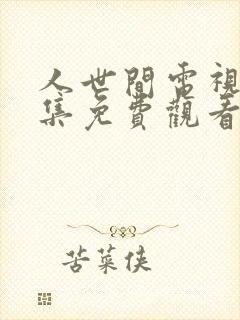 人世間電視
集免費觀看
苦菜侠